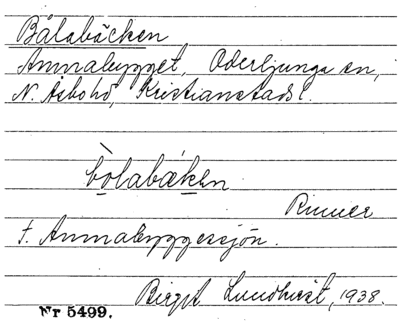 Bålabäcken
Ammakygget, Oderljunga sn,
N. Åsbo hd, Kristianstads l.
bolabækęn
Rinner
t. Ammakyggessjön.
Birgit Lundqvist, 1938.
Nr 5499.